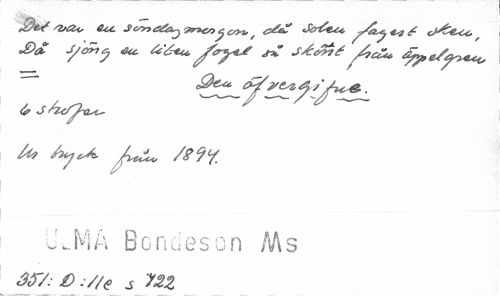 Det var en söndagmorgon, då solen fagert sken,
Då sjöng en liten fogel så skönt från äppelgren
=
Den öfvergifne.
6 strofer
Ur tryck från 1894.
ULMA Bondeson Ms
351: D :11e s 722